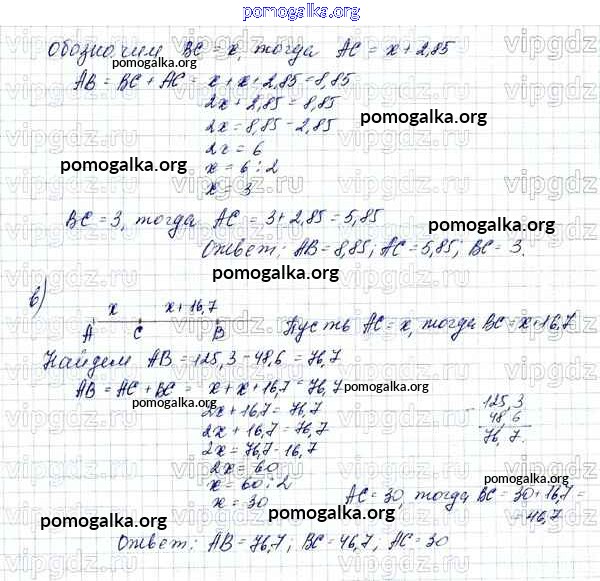 pomogalka.org
Обозначим BC = x, тогда AC = x + 2,85
pomogalka.org
AB = BC + AC = x + x + 2,85 = 8,85
2x + 2,85 = 8,85
2x = 8,85 - 2,85
pomogalka.org
2x = 6
pomogalka.org
x = 6 : 2
x = 3
BC = 3, тогда AC = 3 + 2,85 = 5,85
pomogalka.org
Ответ: AB = 8,85; AC = 5,85; BC = 3.
pomogalka.org
в)
x x + 16,7
A C B Пусть AC = x, тогда BC = x + 16,7
Найдем AB = 125,3 - 48,6 = 76,7
AB = AC + BC = x + x + 16,7 = 76,7
pomogalka.org
pomogalka.org
2x + 16,7 = 76,7
2x + 16,7 = 76,7
2x = 76,7 - 16,7
2x = 60
x = 60 : 2
x = 30
125,3
- 48,6
76,7.
pomogalka.org
AC = 30, тогда BC = 30 + 16,7 =
= 46,7
pomogalka.org
pomogalka.org
Ответ: AB = 76,7; BC = 46,7; AC = 30
pomogalka.org
vipgdz.ru